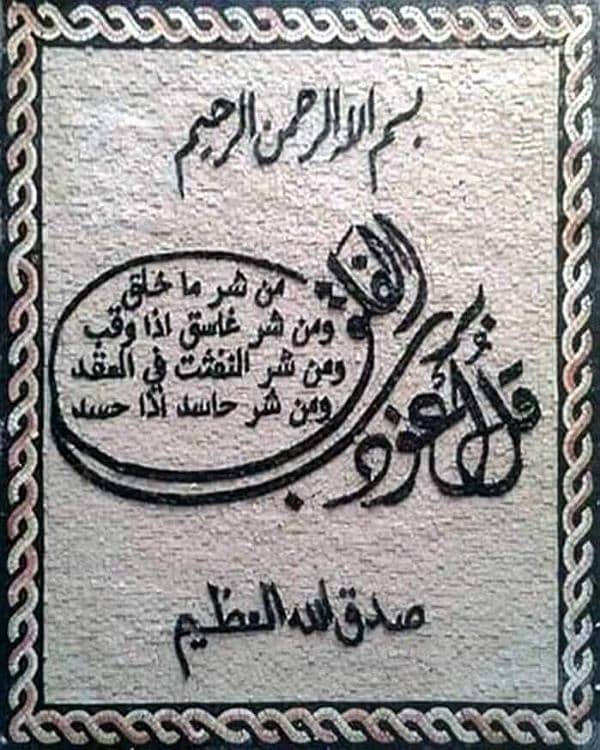 بسم الله الرحمن الرحيم
قل أعوذ برب الفلق
من شر ما خلق
ومن شر غاسق اذا وقب
ومن شر النفثت في العقد
ومن شر حاسد اذا حسد
صدق الله العظيم